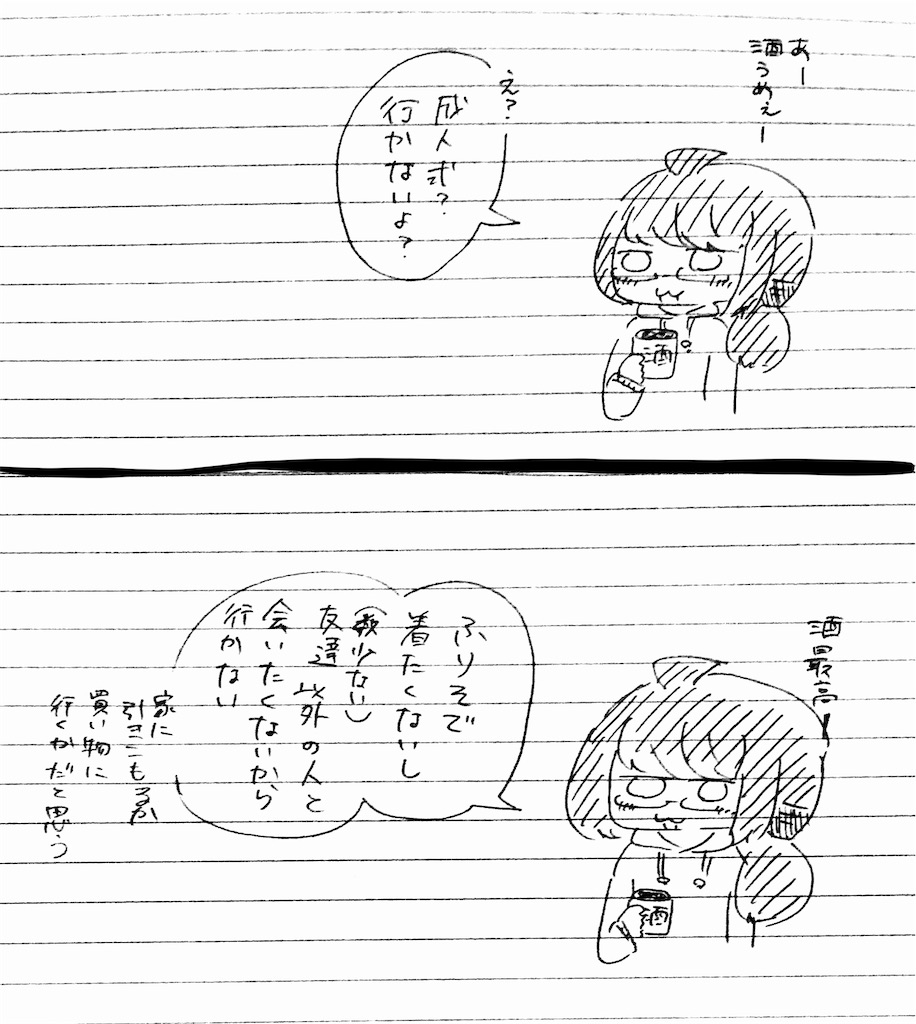 あー
酒うめぇー
え?
成人式?
行かないよ?
酒
酒最高ー
ふりそで
着たくないし
(数少ない)
友達以外の人と
会いたくないから
行かない
家に
引きこもるか
買い物に
行くかだと思う
酒